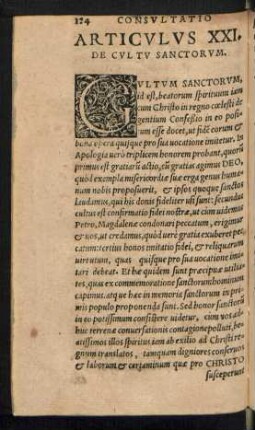 124 CONSVLTATIO
ARTICVLVS XXI.
DE CVLTV SANCTORVM.
CVLTVM SANCTORVM,
id est, beatorum spirituum iam
cum Christo in regno cœlesti de
gentium Confessio in eo posi-
tum esse docet, ut fidẽ eorum &
bona opera quisque pro sua uocatione imitetur. In
Apologia uerò triplicem honorem probant, quorũ
primus est gratiarũ actio, cũ gratias agimus DEO,
quòd exempla misericordiæ suæ erga genus huma-
num nobis proposuerit, & ipsos quoque sanctos
laudamus, qui his donis fideliter usi sunt: secundus
cultus est confirmatio fidei nostræ, ut cum uidemus
Petro, Magdalenæ condonari peccatum, erigimur
& nos, ut credamus, quòd uerè gratia exuberet pec
catum: tertius honos imitatio fidei, & reliquarum
uirtutum, quas quisque pro sua uocatione imi-
tari debeat. Et hæ quidem sunt præcipuæ utilita-
tes, quas ex commemoratione sanctorum hominum
capimus, atque hæc in memoria sanctorum in pri-
mis populo proponenda sunt. Sed honor sanctorũ
in eo potissimum consistere uidetur, cum nos ad-
huc terrenæ conuersationis contagione polluti, be-
atissimos illos spiritus iam ab exilio ad Christi re-
gnum translatos, tamquam digniores conseruos
& laborum & certaminum quæ pro CHRISTO
susceperunt